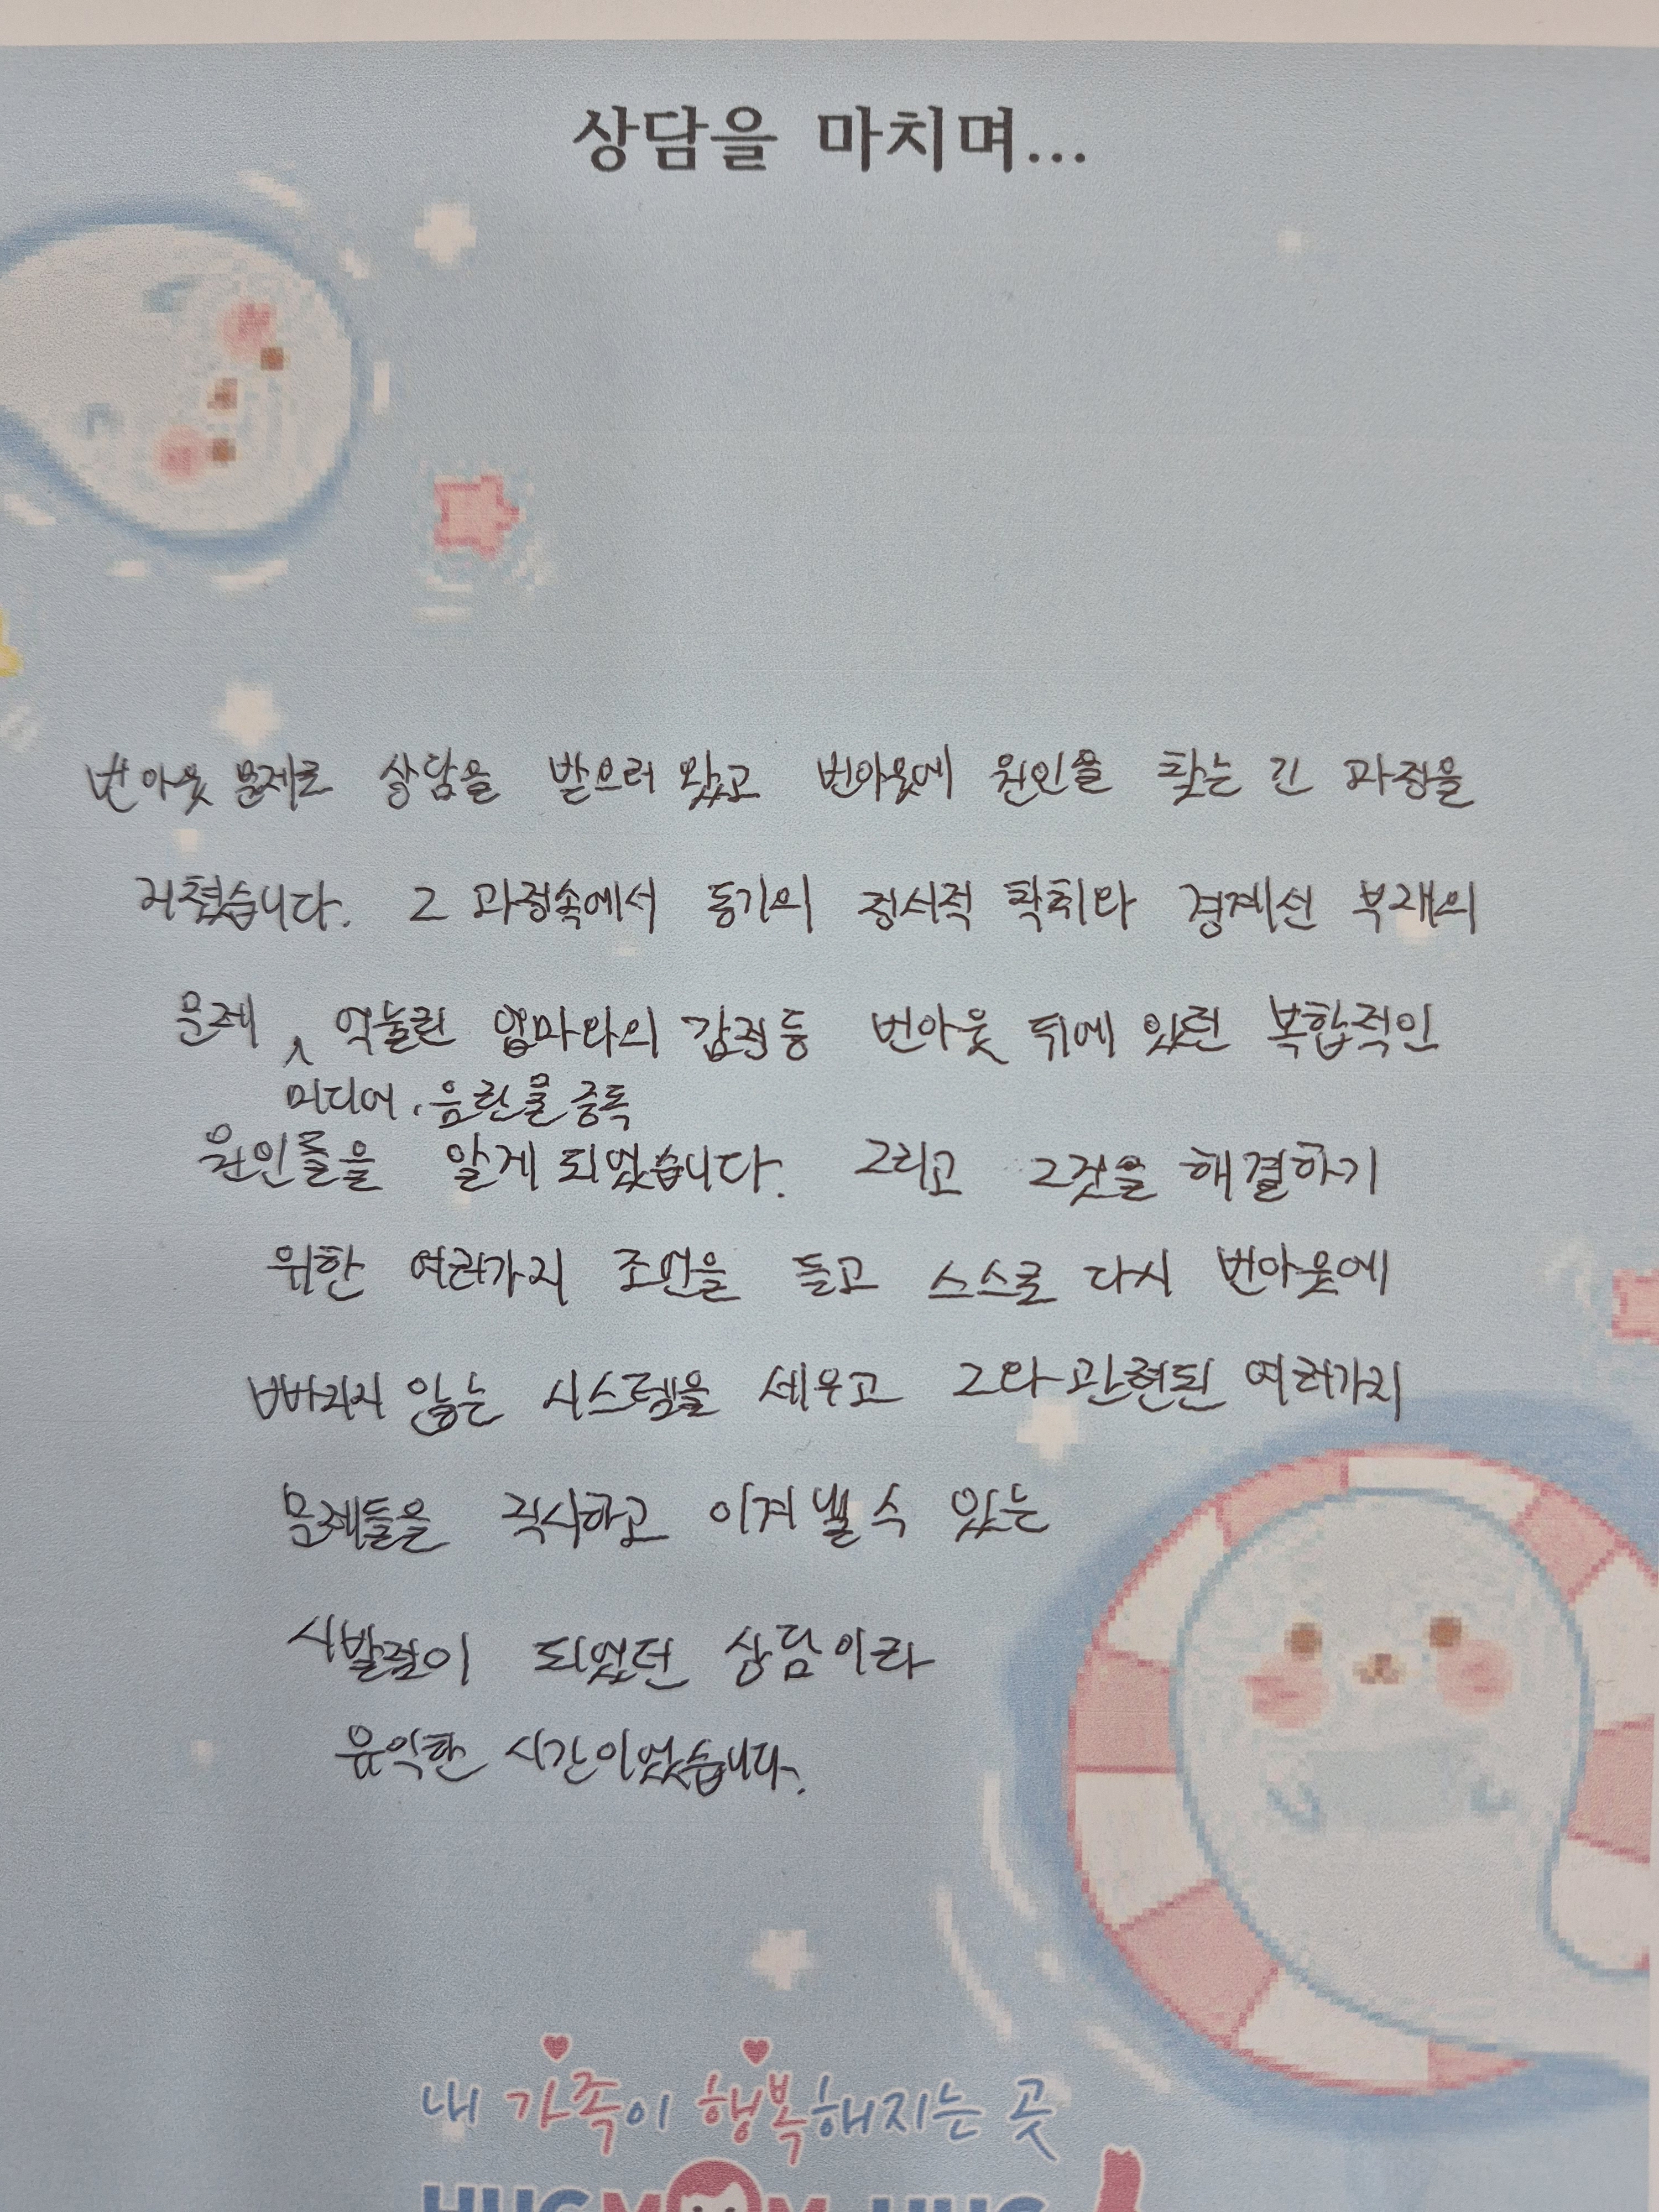 상담을 마치며...
번아웃 문제로 상담을 받으러 왔고 번아웃에 원인을 찾는 긴 과정을
거쳤습니다. 그 과정속에서 동기의 정서적 착취와 경계선 부재의
문제 ^ 억눌린 엄마와의 감정 등 번아웃 뒤에 있던 복합적인
미디어, 음란물 중독
원인들을 알게 되었습니다. 그리고 그것을 해결하기
위한 여러가지 조언을 듣고 스스로 다시 번아웃에
빠지지 않는 시스템을 세우고 그와 관련된 여러가지
문제들을 직시하고 이겨낼 수 있는
시발점이 되었던 상담이라
유익한 시간이었습니다.
내 가족이 행복해지는 곳
HUGMOM HUG